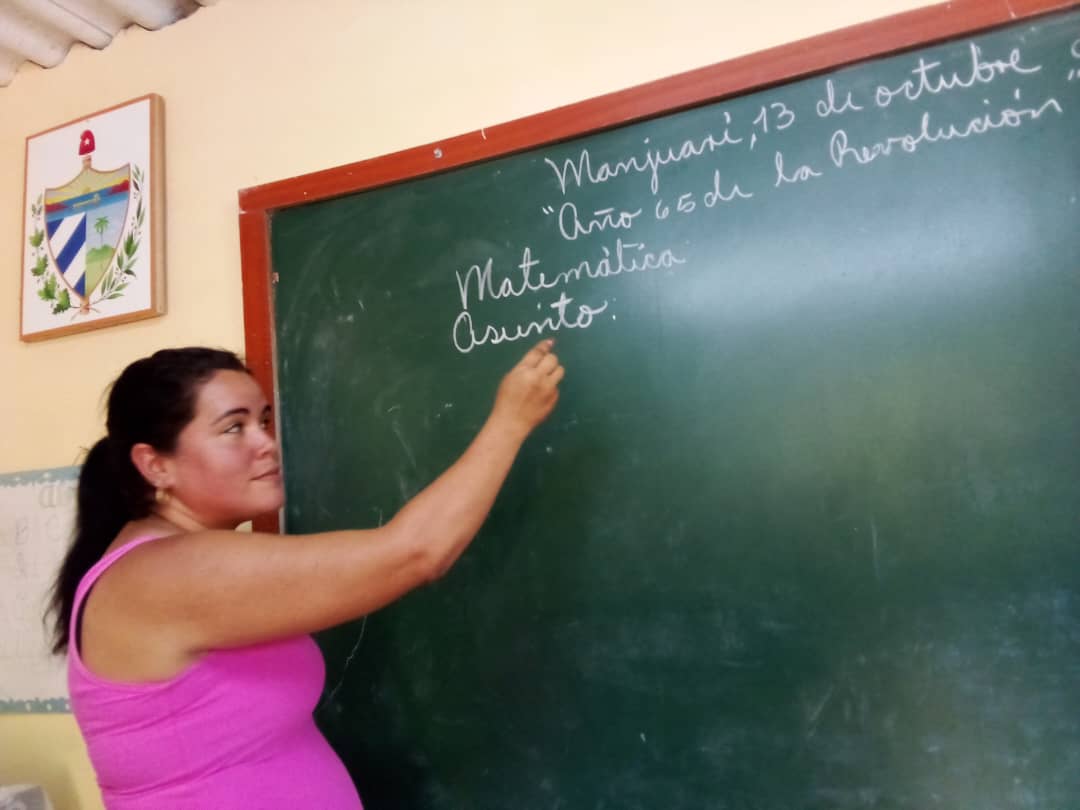 Manjuarí, 13 de octubre
"Año 65 de la Revolución"
Matemática
Asunto: